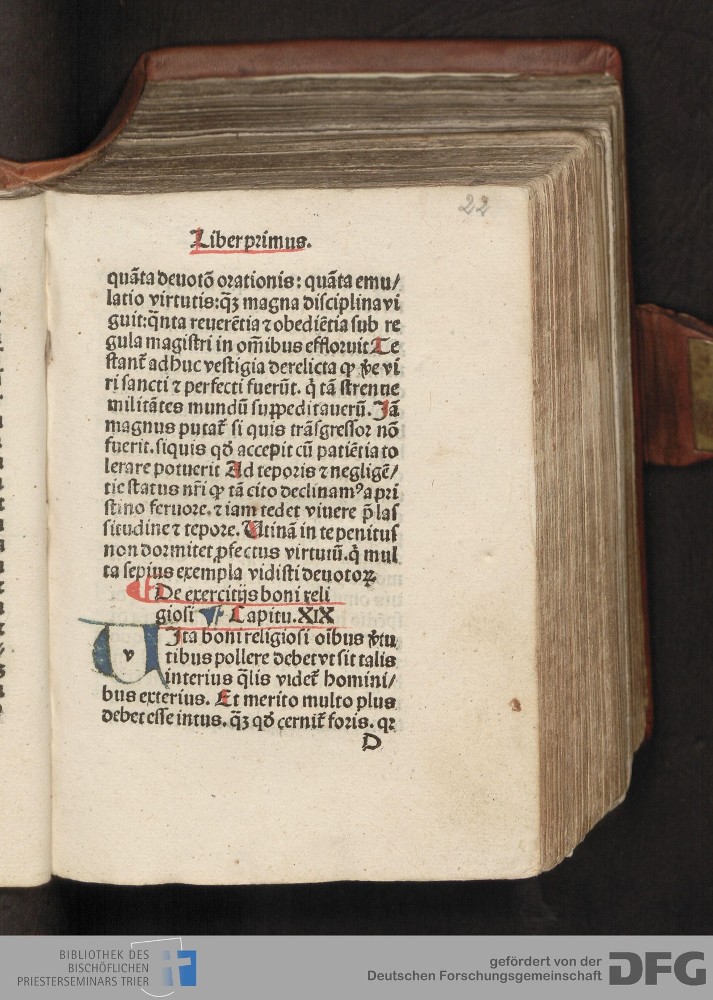 22
Liber primus.
quãta deuotõ orationis: quãta emu/
latio virtutis: qꝫ magna disciplina vi
guit: q̃nta reuerẽtia ⁊ obediẽtia sub re
gula magistri in om̃ibus effloruit Te
stant᷑ adhuc vestigia derelicta ꝙ v̾e vi
ri sancti ⁊ perfecti fuerũt. q̇ tã strenue
militãtes mundũ suppeditauerũ. Jã
magnus putat᷑ si quis trãsgressor nõ
fuerit. siquis qđ accepit cũ patiẽtia to
lerare potuerit Ad teporis ⁊ negligẽ/
tie status nr̃i ꝙ tã cito declinamꝰ a pri
stino feruore. ⁊ iam tedet viuere p̃ las
situdine ⁊ tepore. Utinã in te penitus
non dormitet ꝓfectus virtutũ. q̇ mul
ta sepius exempla vidisti deuotoꝝ
De exercitijs boni reli
giosi Capitu. XIX
v
Jta boni religiosi oibus v̾tu
tibus pollere debet vt sit talis
interius q̃lis videt᷑ homini/
bus exterius. Et merito multo plus
debet esse intus. qꝫ qđ cernit᷑ foris. qꝛ
D
BIBLIOTHEK DES
BISCHÖFLICHEN
PRIESTERSEMINARS TRIER
gefördert von der
Deutschen Forschungsgemeinschaft DFG